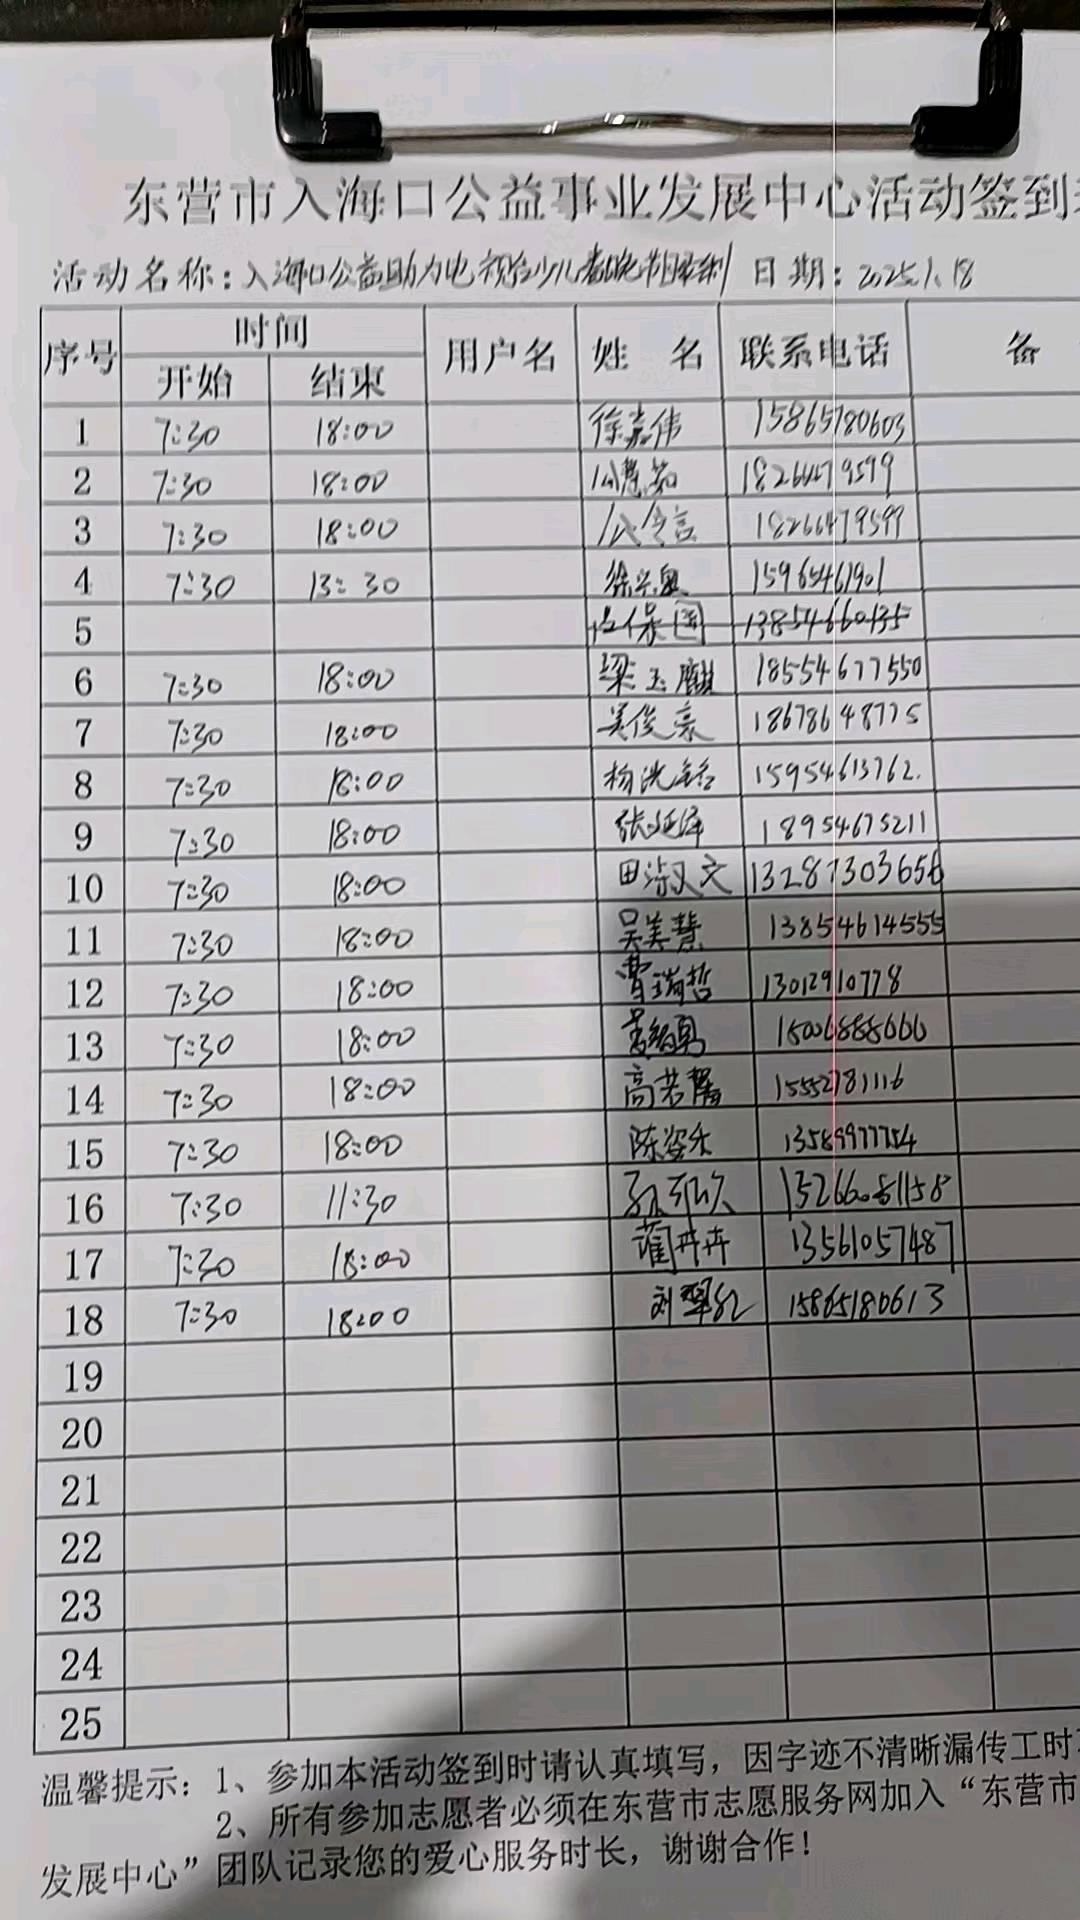 东营市入海口公益事业发展中心活动签到
活动名称：入海口公益助力电视台少儿春晚节目录制 日期：2025.1.18
序号 时间 用户名 姓 名 联系电话 备
开始 结束
1 7:30 18:00 徐嘉伟 15865780603
2 7:30 18:00 18266479599
3 7:30 18:00 18266479599
4 7:30 13:30 15965461901
5 保国 13854660135
6 7:30 18:00 梁玉麒 18554677550
7 7:30 18:00 吴俊豪 18678648775
8 7:30 18:00 杨洸铭 15954613762.
9 7:30 18:00 张延泽 18954675211
10 7:30 18:00 田 文 13287303656
11 7:30 18:00 吴美慧 13854614555
12 7:30 18:00 曹瑞哲 13012910778
13 7:30 18:00 15006888666
14 7:30 18:00 高若馨 15552781116
15 7:30 18:00 陈姿禾 13589977754
16 7:30 11:30 15266081158
17 7:30 18:00 蔺卉卉 13561057487
18 7:30 18:00 刘翠红 15865180613
19
20
21
22
23
24
25
温馨提示：1、参加本活动签到时请认真填写，因字迹不清晰漏传工时
2、所有参加志愿者必须在东营市志愿服务网加入“东营市
发展中心”团队记录您的爱心服务时长，谢谢合作！